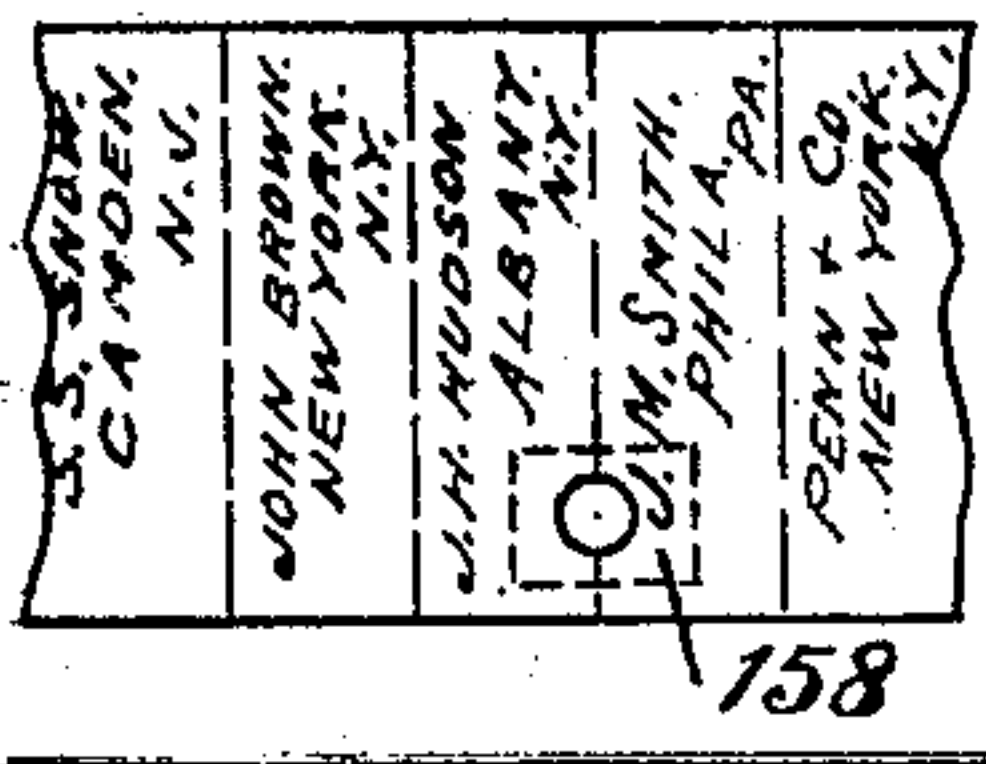 S. S. SNOW.
CAMDEN.
N. J.
JOHN BROWN.
NEW YORK.
N.Y.
J. H. HUDSON
ALBANY.
N.Y.
J. M. SMITH.
PHILA.
PA.
PENN + CO.
NEW YORK.
N.Y.
158